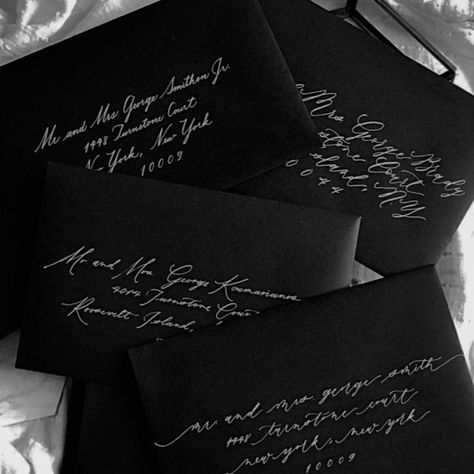 Mr. and Mrs. George Smithen Jr.
1448 Turnstone Court
New York, New York
10009
Mrs George Brady
stone Court
sland, NY
0044
Mr. and Mrs. George Koumarianos
4014 Turnstone Cou
Roosevelt Island,
mr. and mrs. george smith
1448 turnstone court
new york, new york
10009